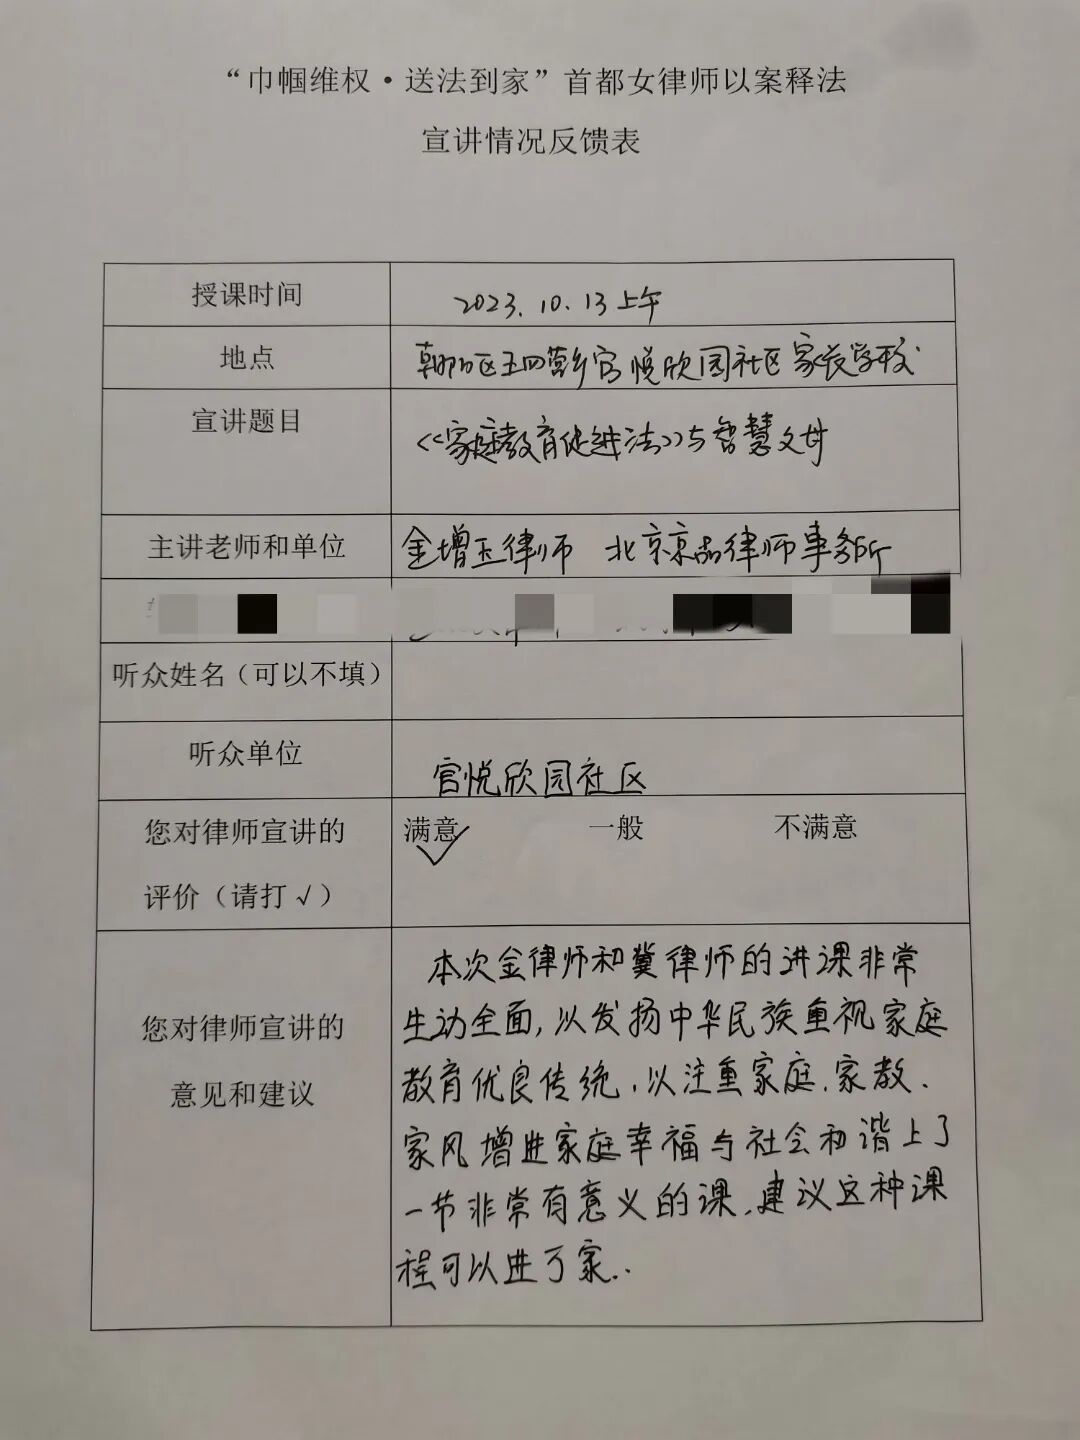 “巾帼维权·送法到家”首都女律师以案释法
宣讲情况反馈表
授课时间
2023.10.13上午
地点
朝阳区王四营乡官悦欣园社区家长学校
宣讲题目
《家庭教育促进法》与智慧父母
主讲老师和单位
金增玉律师 北京京品律师事务所
听众姓名（可以不填）
听众单位
官悦欣园社区
您对律师宣讲的
评价（请打√）
满意 一般 不满意
√
您对律师宣讲的
意见和建议
本次金律师和冀律师的讲课非常
生动全面,以发扬中华民族重视家庭
教育优良传统,以注重家庭、家教、
家风增进家庭幸福与社会和谐上了
一节非常有意义的课,建议这种课
程可以进万家..